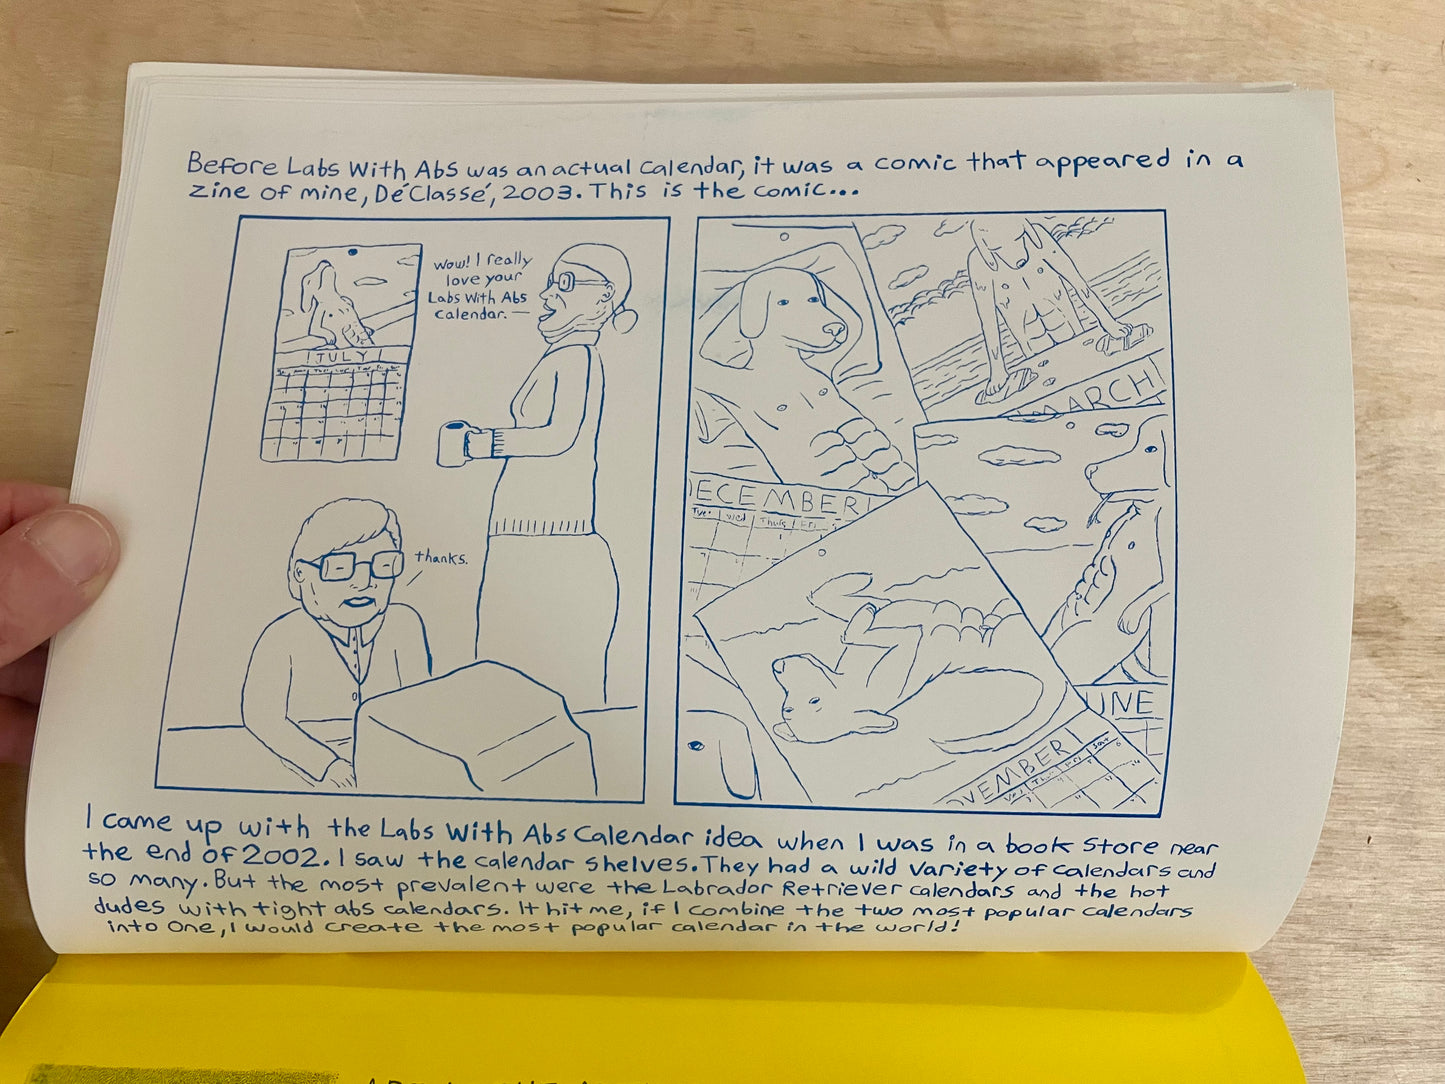 Before Labs With Abs was an actual calendar, it was a comic that appeared in a
zine of mine, DéClassé, 2003. This is the comic...
Wow! I really
love your
Labs With Abs
calendar.
JULY
thanks.
DECEMBER
Tue. Wed Thurs Fri
MARCH
UNE
OVEMBER
Wed Thur Fri Sat
I came up with the Labs With Abs Calendar idea when I was in a book store near
the end of 2002. I saw the calendar shelves. They had a wild variety of calendars and
so many. But the most prevalent were the Labrador Retriever calendars and the hot
dudes with tight abs calendars. It hit me, if I combine the two most popular calendars
into one, I would create the most popular calendar in the world!